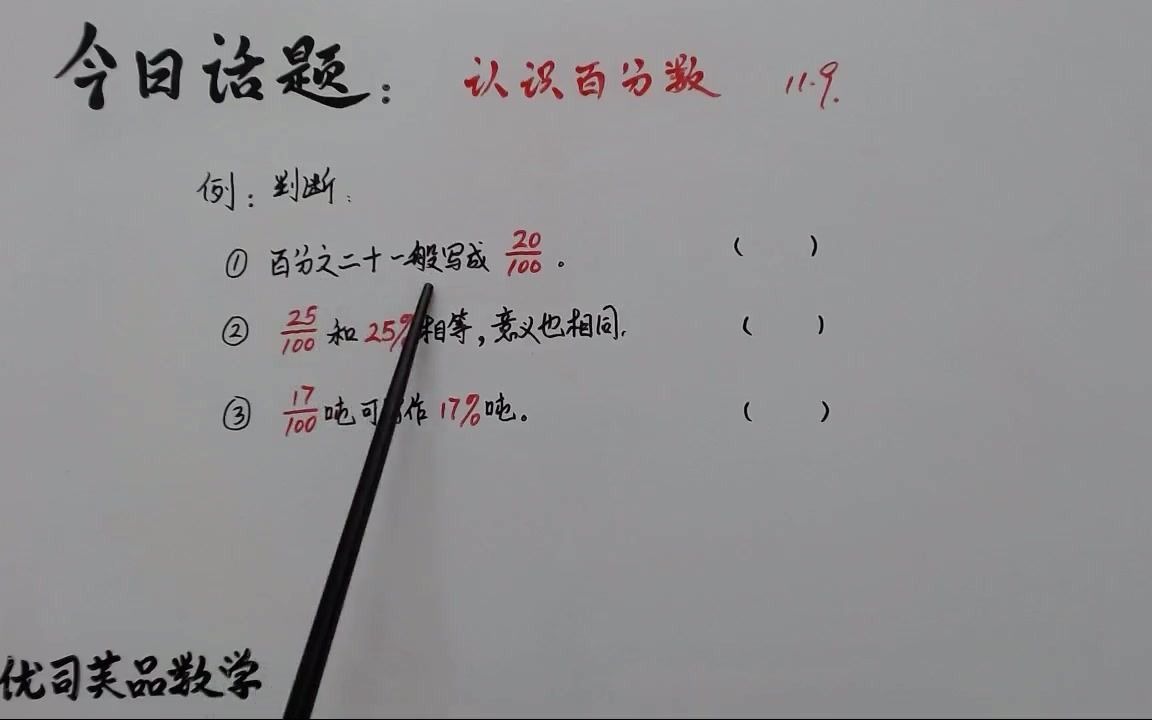 今日话题： 认识百分数 11.9.
例：判断：
① 百分之二十一般写成 20/100 。 ( )
② 25/100 和 25% 相等，意义也相同. ( )
③ 17/100 吨可写作 17% 吨。 ( )
优司芙品数学